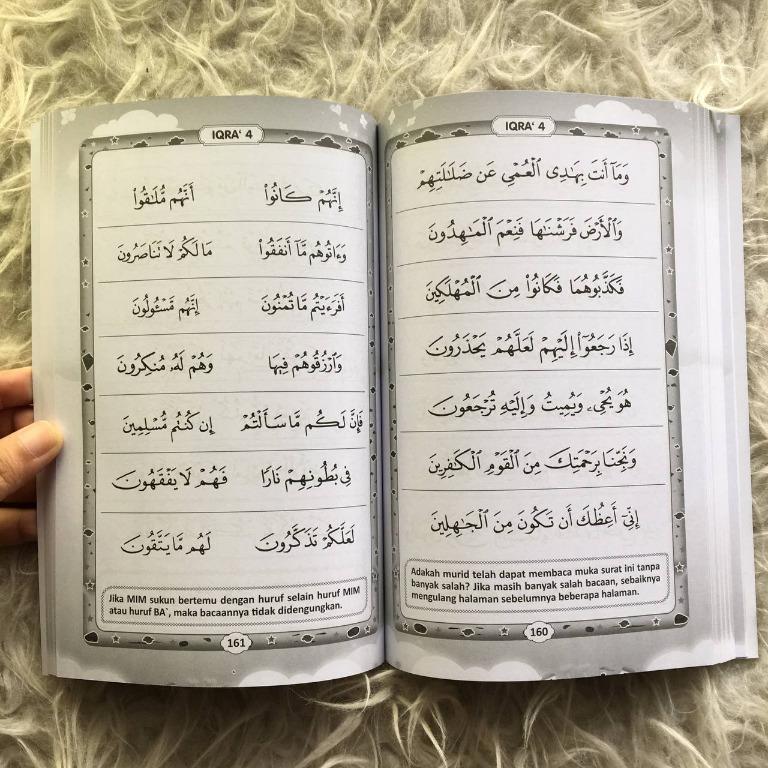 IQRA' 4
وَمَآ أَنتَ بِهَٰدِى ٱلْعُمْىِ عَن ضَلَٰلَتِهِمْ
وَٱلْأَرْضَ فَرَشْنَٰهَا فَنِعْمَ ٱلْمَٰهِدُونَ
فَكَذَّبُوهُمَا فَكَانُوا۟ مِنَ ٱلْمُهْلَكِينَ
إِذَا رَجَعُوٓا۟ إِلَيْهِمْ لَعَلَّهُمْ يَحْذَرُونَ
هُوَ يُحْىِۦ وَيُمِيتُ وَإِلَيْهِ تُرْجَعُونَ
وَنَجِّنَا بِرَحْمَتِكَ مِنَ ٱلْقَوْمِ ٱلْكَٰفِرِينَ
إِنِّىٓ أَعِظُكَ أَن تَكُونَ مِنَ ٱلْجَٰهِلِينَ
Adakah murid telah dapat membaca muka surat ini tanpa
banyak salah? Jika masih banyak salah bacaan, sebaiknya
mengulang halaman sebelumnya beberapa halaman.
160
IQRA' 4
إِنَّهُمْ كَانُوا۟ أَنَّهُم مُّلَٰقُوا۟
وَءَاتُوهُم مَّآ أَنفَقُوا۟ مَا لَكُمْ لَا تَنَاصَرُونَ
أَفَرَءَيْتُم مَّا تُمْنُونَ إِنَّهُم مَّسْـُٔولُونَ
وَٱرْزُقُوهُمْ فِيهَا وَهُمْ لَهُۥ مُنكِرُونَ
فَإِنَّ لَكُم مَّا سَأَلْتُمْ إِن كُنتُم مُّسْلِمِينَ
فِى بُطُونِهِمْ نَارًا فَهُمْ لَا يَفْقَهُونَ
لَعَلَّكُمْ تَذَكَّرُونَ لَهُم مَّا يَتَّقُونَ
Jika MIM sukun bertemu dengan huruf selain huruf MIM
atau huruf BA`, maka bacaannya tidak didengungkan.
161